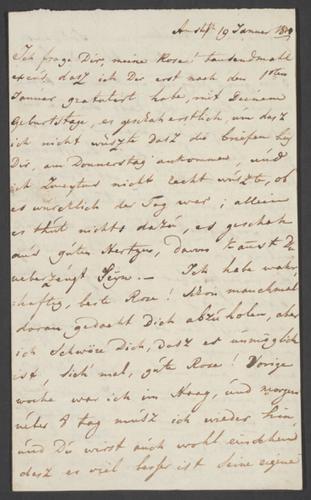 Amstf. 19 Januar 1819
Ich frage Dir, meine Rose tausendmahl
dasz ich Der erst nach den 1sten
Januar gratulert habe, mit Deinem
Geburtstage, es geschah erstlich, um dasz
ich nicht wüszte dasz die briefen bey
Dir, am Donnerstag ankommen, und
ich Zweytens nicht recht wüszte, ob
es würcklich der Tag war; allein
es thut nichts dazú, es geschah
aus gúten Hertzen, davon kanst Du
ueberzeugt Seyn. — Ich habe wahr,
haftig, beste Rose! Schon manchmal
daran gedacht Dich abzuholen, aber
ich Schwöre Dich, dasz es unmöglich
ist, Sich mel, gúte Rose! Vorige
woche war ich im Haag, und morgen
ueber 8 tag musz ich wieder hin,
und Du wirst auch wohl einsehen
dasz es viel besser ist Seine eigene